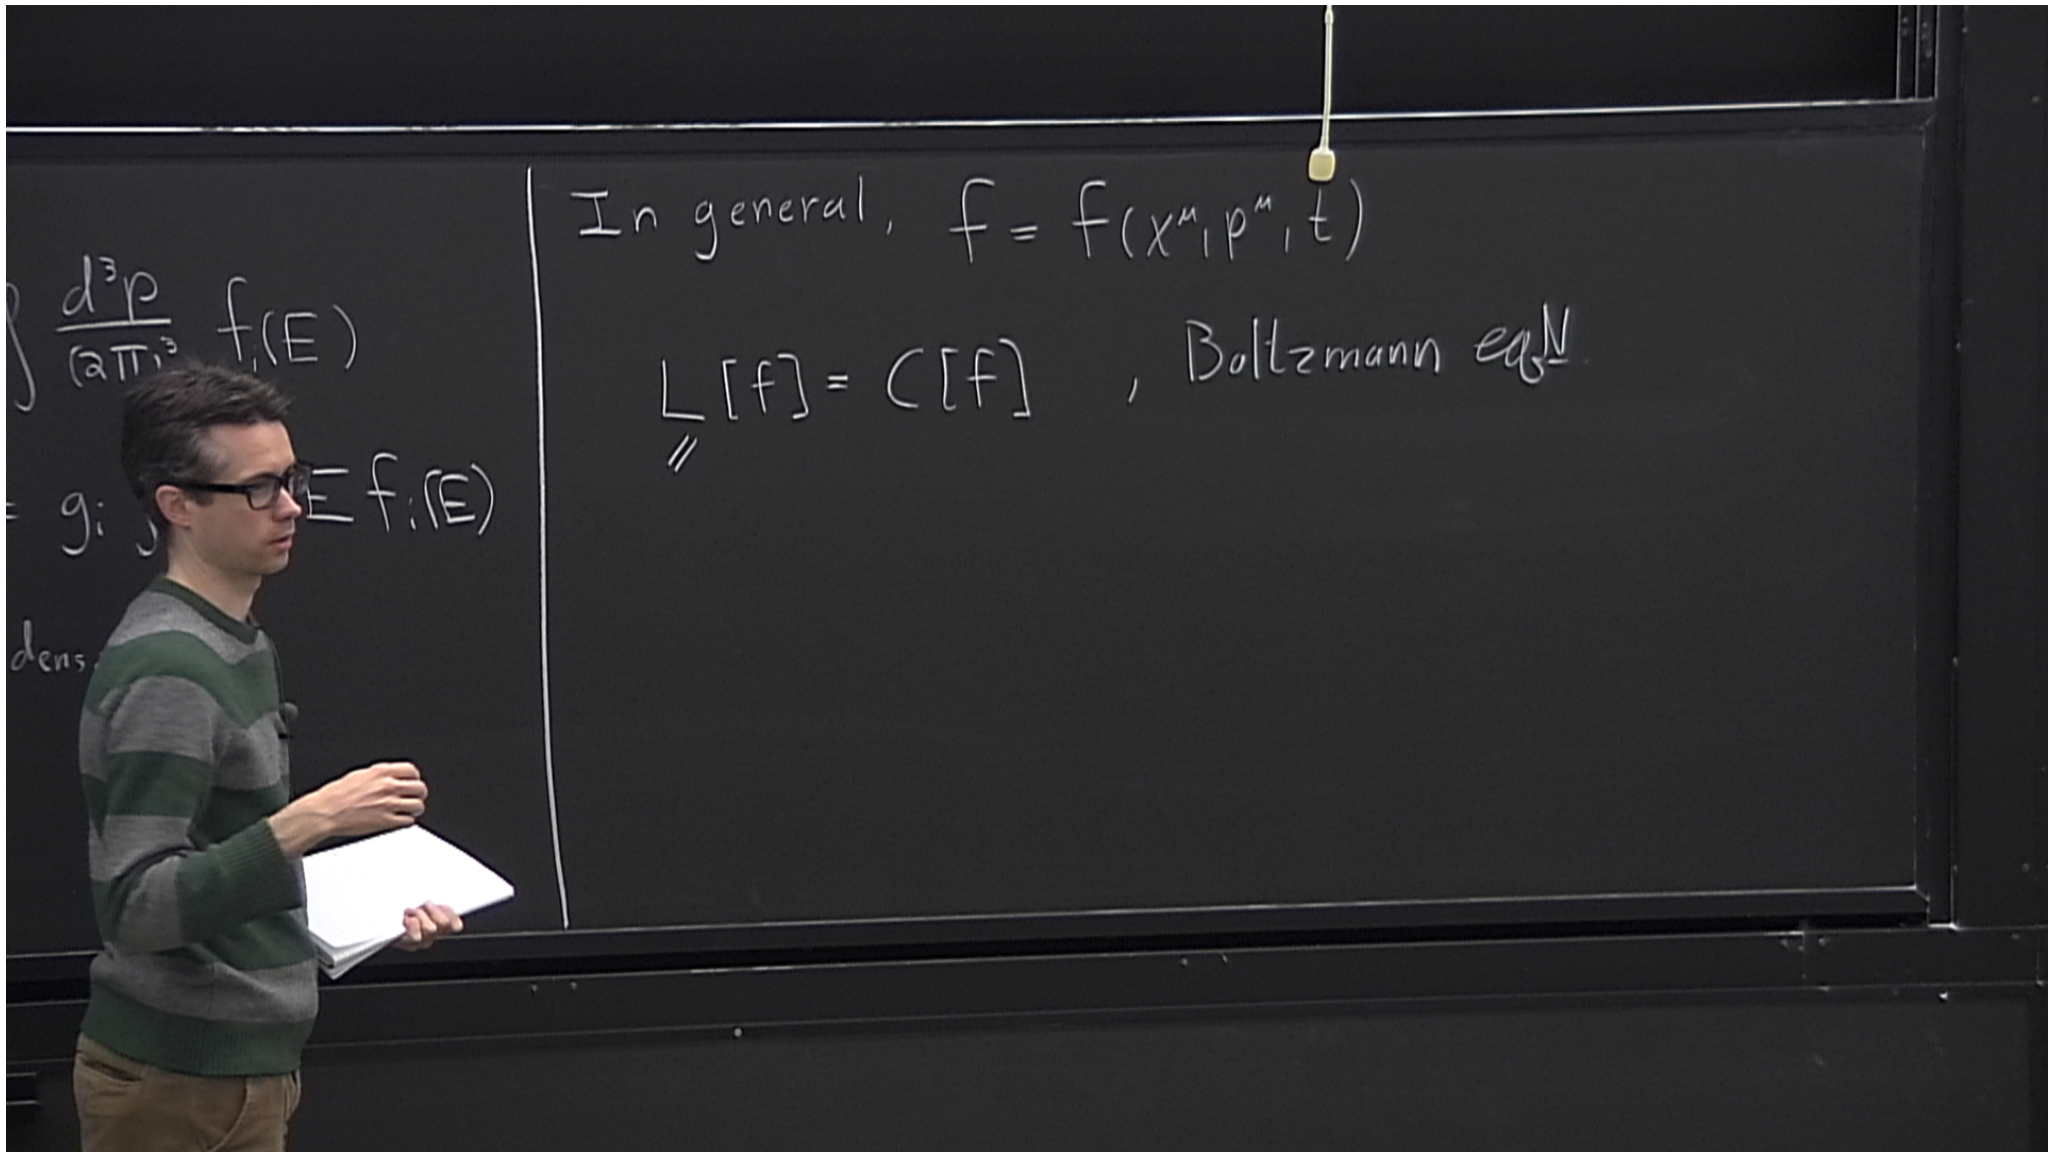 ∫ d³p/(2π)³ fᵢ(E)
= gᵢ ∫ E fᵢ(E)
dens.
In general, f = f(x^μ, p^μ, t)
L[f] = C[f] , Boltzmann eqN.